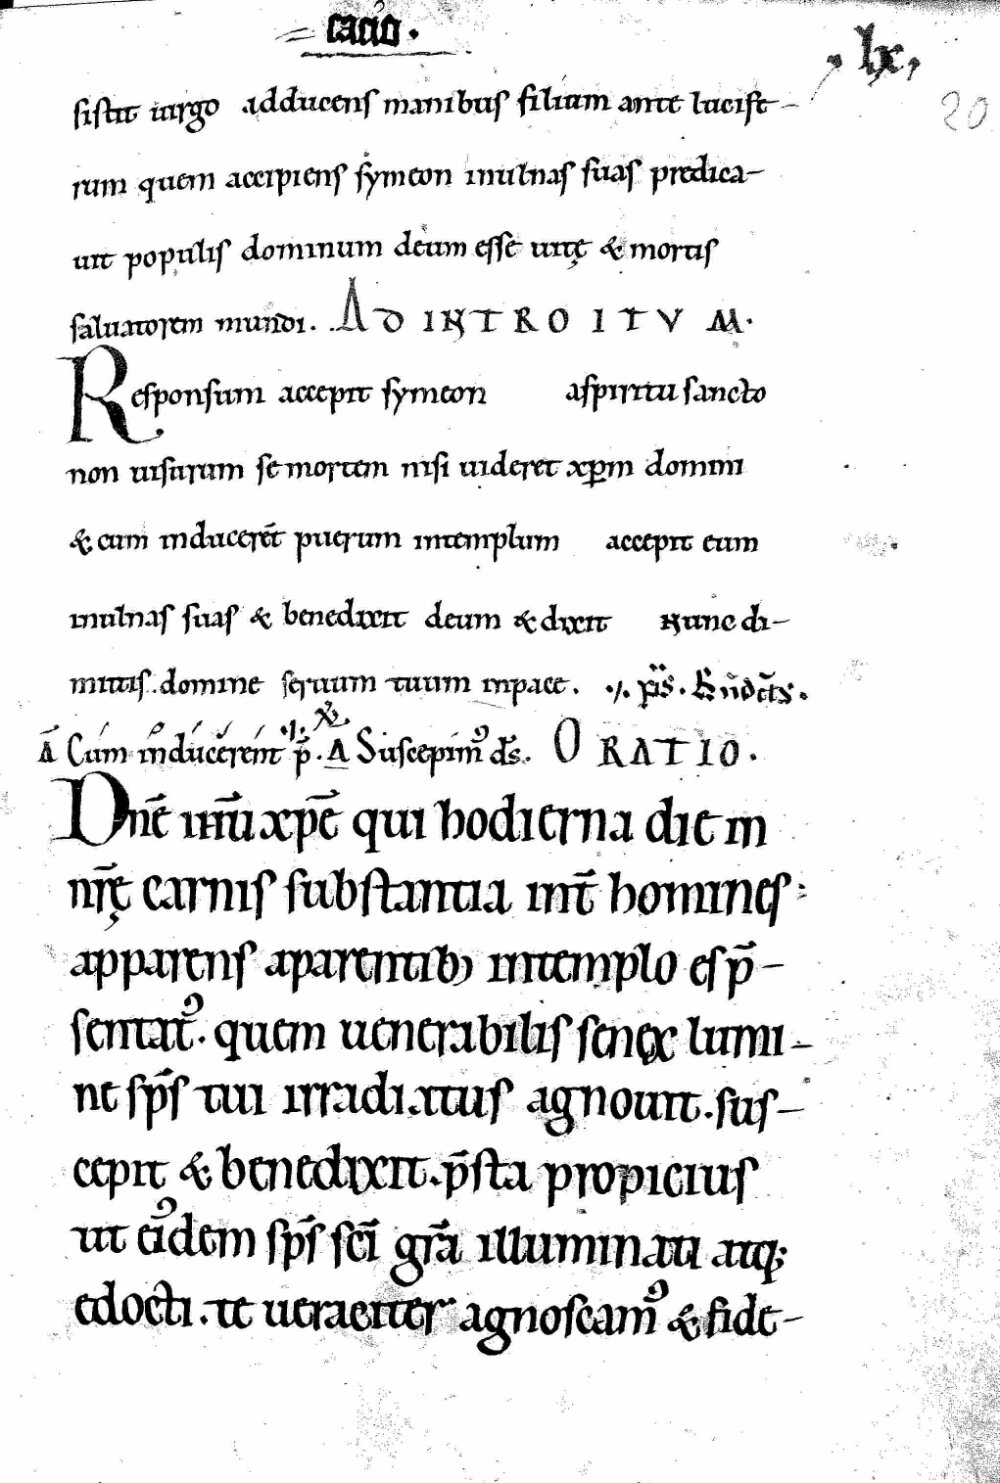 cacio.
, lx,
20
sistit uirgo adducens manibus filium ante lucife-
rum quem accipiens symeon inulnas suas predica-
uit populis dominum deum esse uitę & mortis
saluatorem mundi. AD INTROITVM.
Responsum accepit symeon aspiritu sancto
non uisurum se mortem nisi uideret xp̄m domini
& cum inducerēt puerum intemplum accepit eum
inulnas suas & benedixit deum & dixit Nunc di-
mittis domine seruum tuum inpace.
Ā Cum inducerent p̄. A Suscepimꝰ d̄s. ORATIO.
Dn̄e ihū xpē qui hodierna die in
nr̄ę carnis substantia int̄ homines
apparens aparentibꝫ intemplo es p̄-
sentatꝰ. quem uenerabilis senex lumi-
ne sp̄s tui irradiatus agnouit. sus-
cepit & benedixit. p̄sta propicius
ut eiꝰdem sp̄s sc̄i gr̄a illuminati atq;
edocti. te ueraciter agnoscamꝰ & fide-